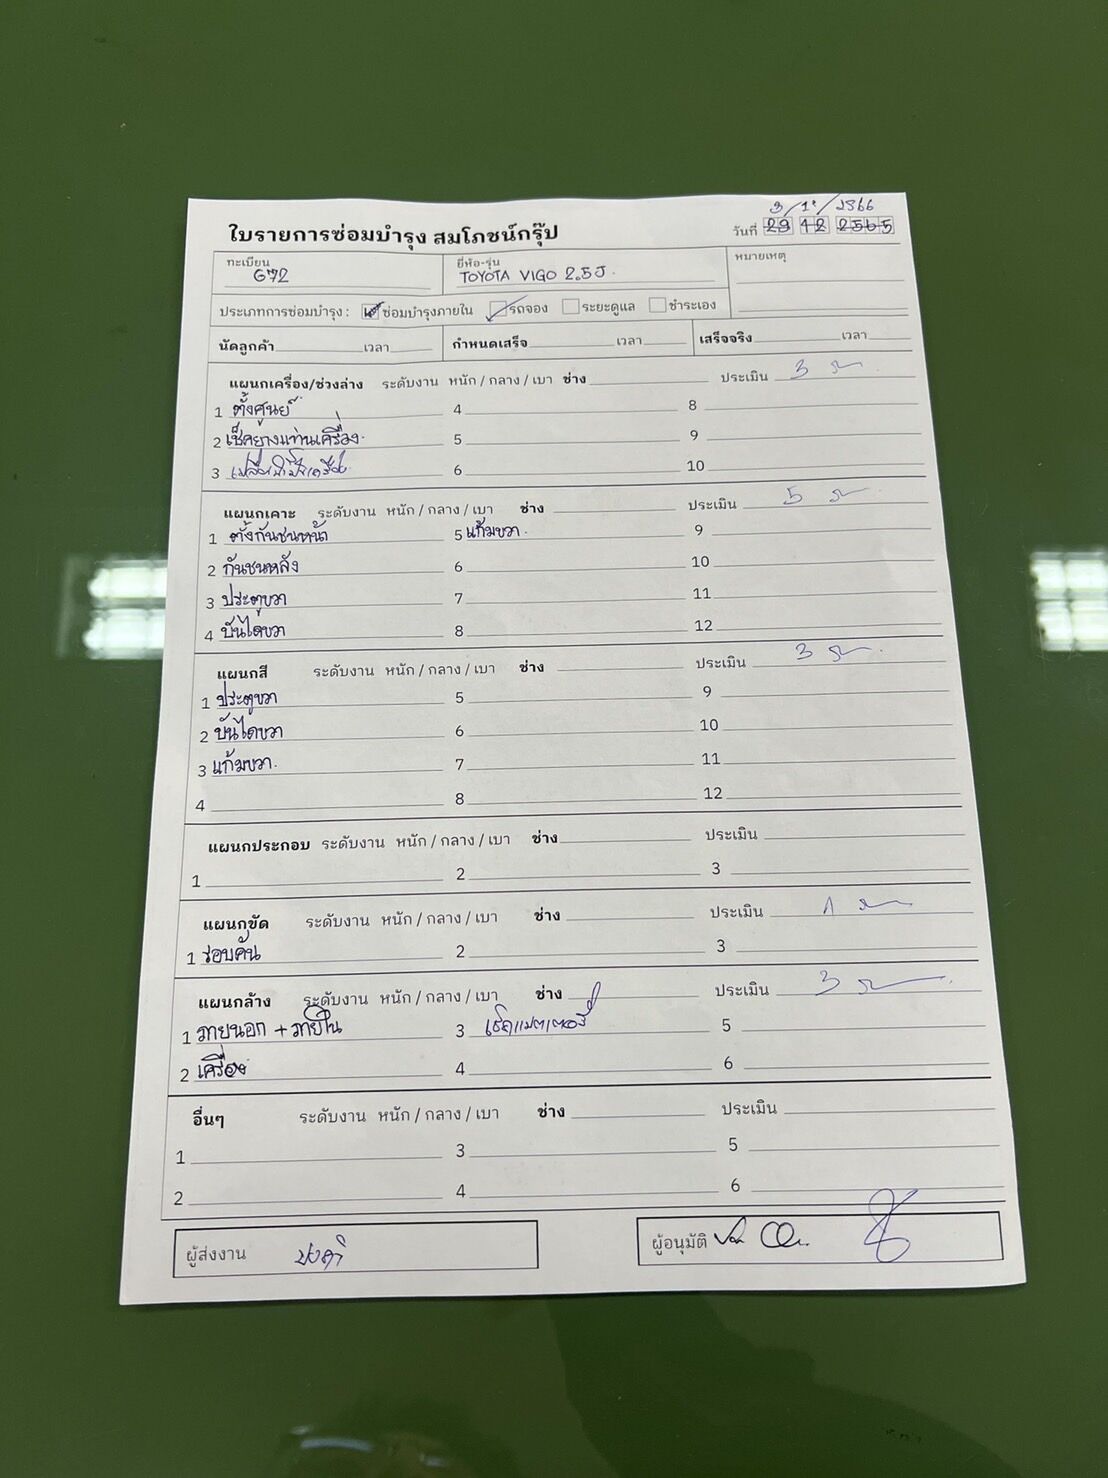 ใบรายการซ่อมบำรุง สมโภชน์กรุ๊ป
3/1/2566
วันที่ 29 12 2565
ทะเบียน 672
ยี่ห้อ-รุ่น TOYOTA VIGO 2.5J
หมายเหตุ
ประเภทการซ่อมบำรุง : ซ่อมบำรุงภายใน รถจอง ระยะดูแล ชำระเอง
นัดลูกค้า เวลา กำหนดเสร็จ เวลา เสร็จจริง เวลา
แผนกเครื่อง/ช่วงล่าง ระดับงาน หนัก / กลาง / เบา ช่าง ประเมิน 3
1 ตั้งศูนย์ 4 8
2 เช็คยางแท่นเครื่อง 5 9
3 เปลี่ยนน้ำมันเครื่อง 6 10
แผนกเคาะ ระดับงาน หนัก / กลาง / เบา ช่าง ประเมิน 5
1 ตั้งกันชนหน้า 5 แก้มขวา 9
2 กันชนหลัง 6 10
3 ประตูขวา 7 11
4 บันไดขวา 8 12
แผนกสี ระดับงาน หนัก / กลาง / เบา ช่าง ประเมิน 3
1 ประตูขวา 5 9
2 บันไดขวา 6 10
3 แก้มขวา 7 11
4 8 12
แผนกประกอบ ระดับงาน หนัก / กลาง / เบา ช่าง ประเมิน
1 2 3
แผนกขัด ระดับงาน หนัก / กลาง / เบา ช่าง ประเมิน 1
1 รอบคัน 2 3
แผนกล้าง ระดับงาน หนัก / กลาง / เบา ช่าง ประเมิน 3
1 ภายนอก + ภายใน 3 เช็คแบตเตอรี่ 5
2 เครื่อง 4 6
อื่นๆ ระดับงาน หนัก / กลาง / เบา ช่าง ประเมิน
1 3 5
2 4 6
ผู้ส่งงาน
ผู้อนุมัติ